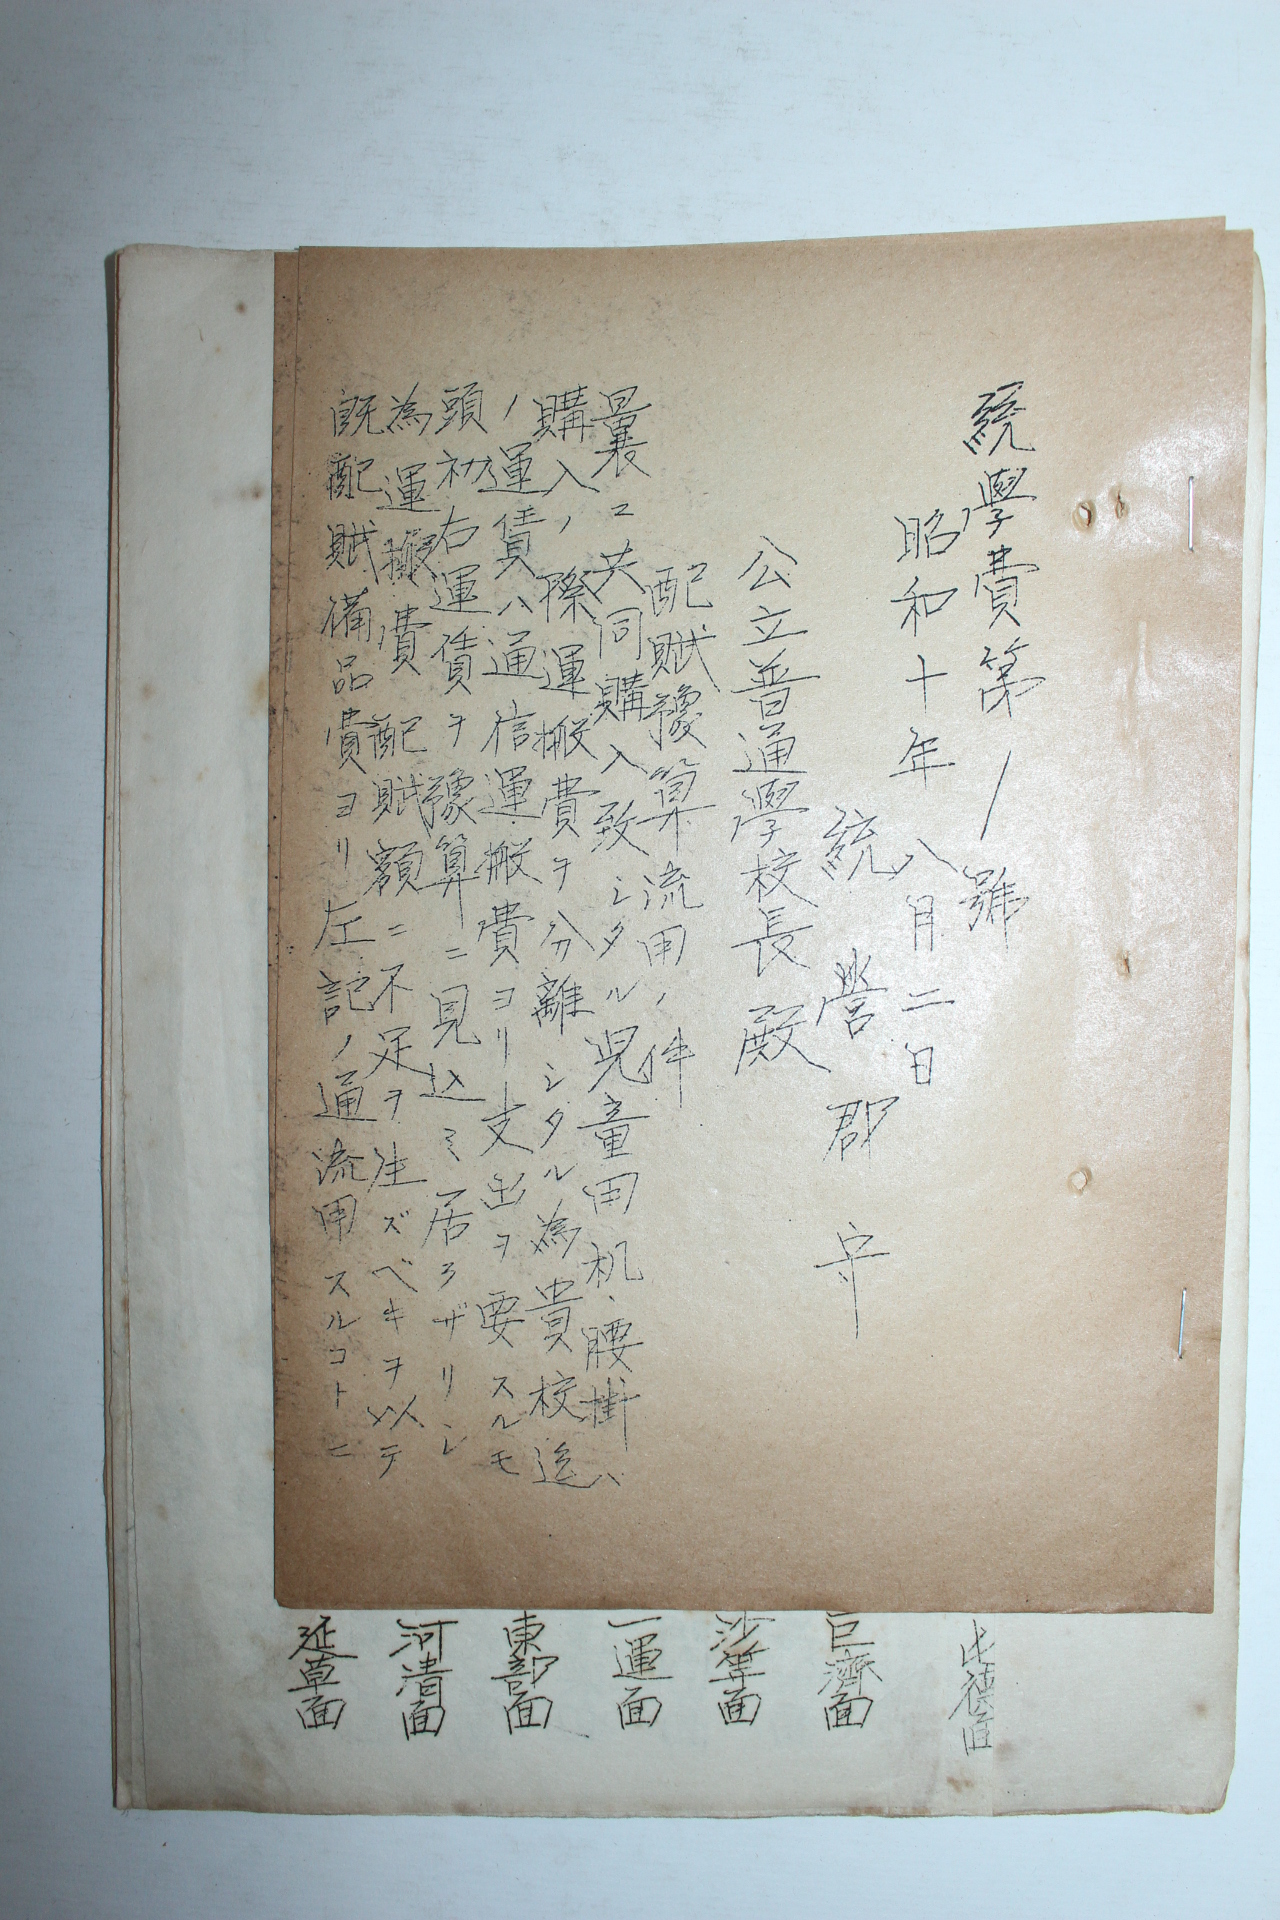 統學費第一號
昭和十年八月二日
統營郡守
公立普通學校長殿
配賦豫算流用ノ件
曩ニ共同購入致シタル児童用机、腰掛ハ
購入ノ際運搬費ヲ分離シタル為貴校迄
ノ運賃ハ通信運搬費ヨリ支出ヲ要スルモ
頭初右運賃ヲ豫算ニ見込ミ居ラザリシ
為運搬費配賦額ニ不足ヲ生ズベキヲ以テ
既配賦備品費ヨリ左記ノ通流用スルコトニ
面
巨濟面
沙等面
一運面
東部面
河清面
延草面